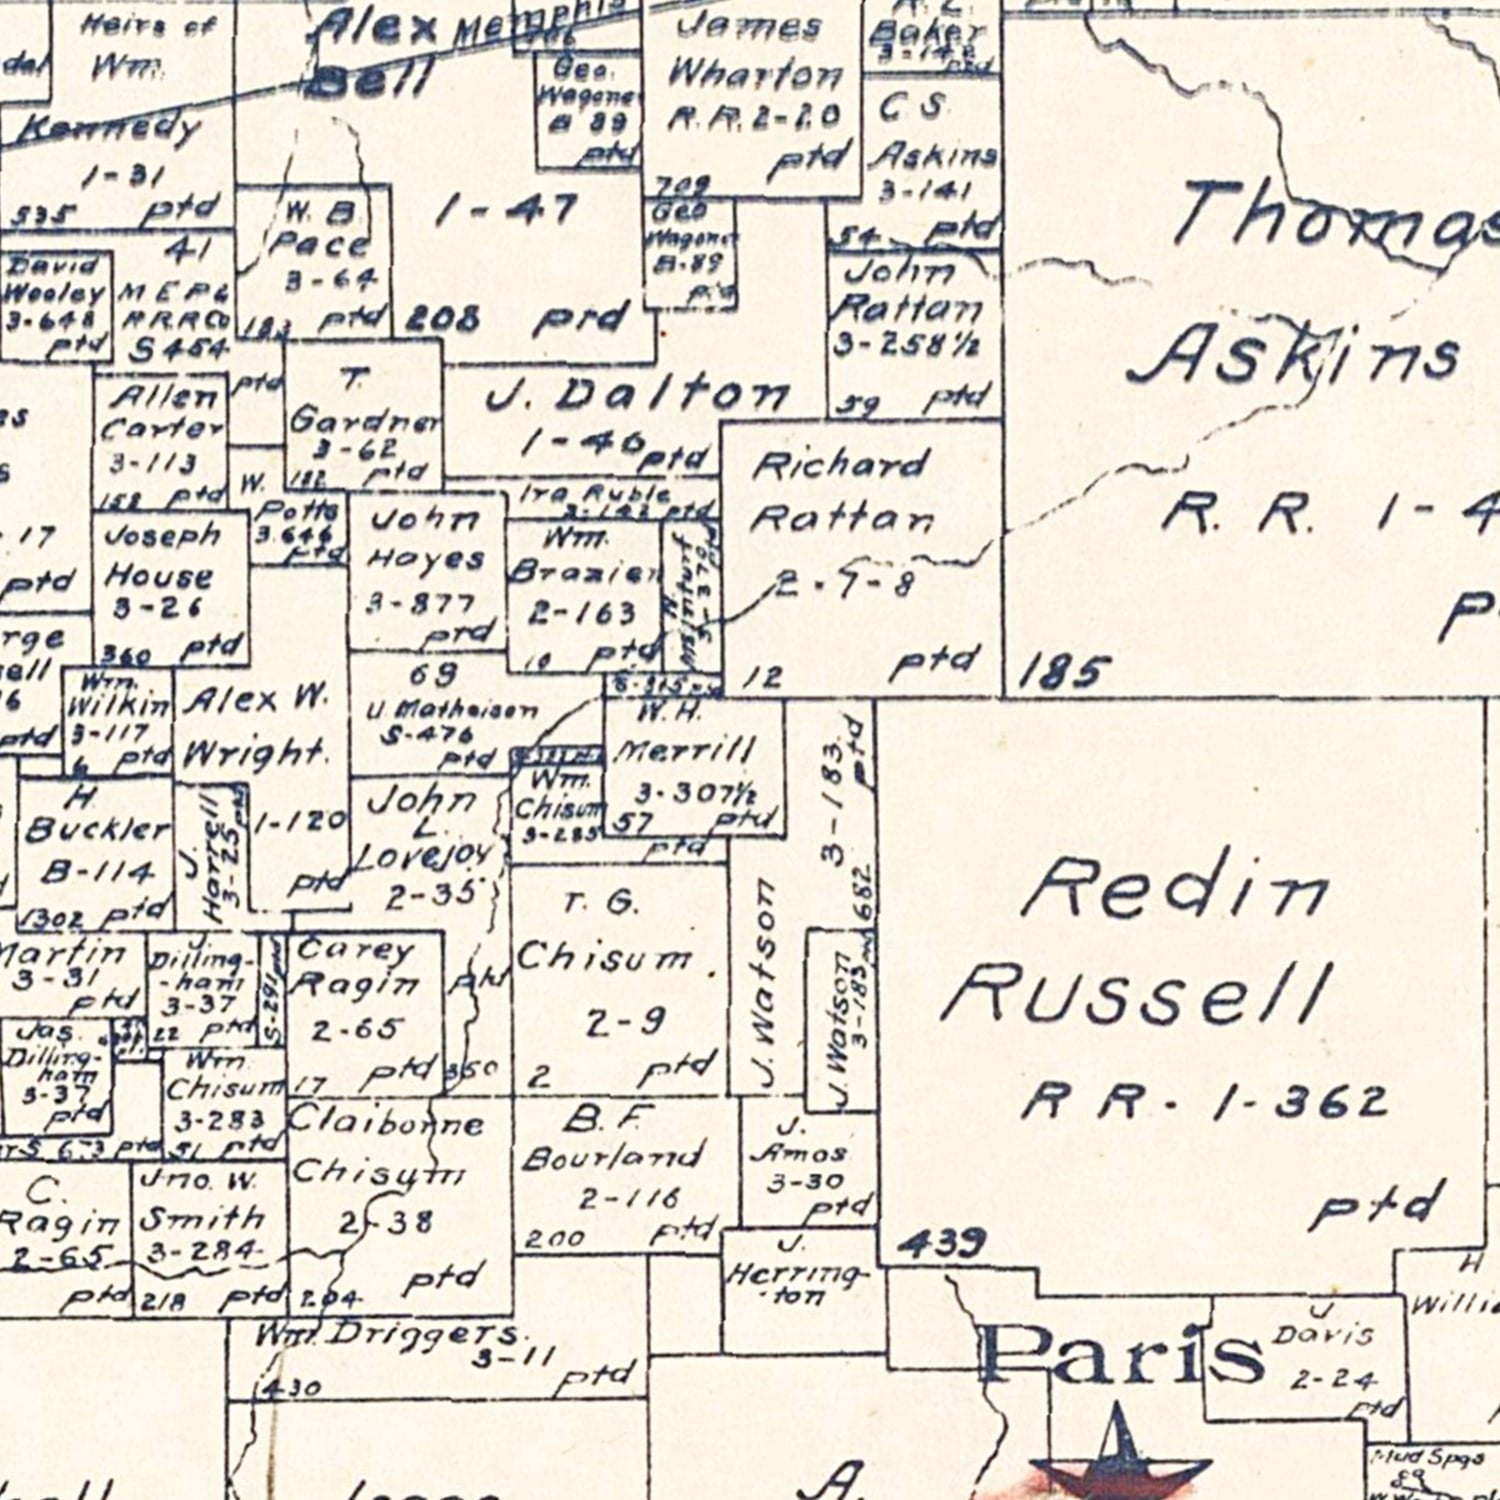 Heirs of
Wm.
Kennedy
1-31
535 ptd
Alex
Bell
1-47
208 ptd
Memphis
Geo.
Wagoner
B 89
ptd
James
Wharton
R.R. 2-20
ptd
709
Baker
C S
Askins
3-141
54 ptd
Geo
Wagoner
B-89
ptd
John
Rattan
3-258½
59 ptd
Thomas
Askins
R. R. 1-4
185
W. B
Pace
3-64
ptd
David
Wooley
3-648
ptd
41
M E P &
P R R Co
S 454
ptd
Allen
Carter
3-113
158 ptd
T.
Gardner
3-62
182 ptd
J. Dalton
1-46 ptd
Ira Ruble
3-142 ptd
Richard
Rattan
2-7-8
12 ptd
17
ptd
W.
Potts
3.646
ptd
Joseph
House
3-26
360 ptd
John
Hayes
3-877
ptd
Wm.
Brazier
2-163
10 ptd
Wm.
Wilkin
3-117
6 ptd
Alex W.
Wright.
1-120
ptd
69
U Mathaison
S-476
ptd
W. H.
Merrill
3-307½
57 ptd
Wm.
Chisum
3-285
ptd
H.
Buckler
B-114
1302 ptd
J.
Harrell
3-25 ptd
John
L.
Lovejoy
2-35
ptd
350
3-183
ptd
J. Watson
J. Watson
3-183
682
Redin
Russell
R R. 1-362
ptd
439
Martin
3-31
ptd
J.
Dilling-
-ham
3-37
22 ptd
S-291
Carey
Ragin
2-65
17 ptd
T. G.
Chisum.
2-9
2 ptd
Jas.
Dilling-
ham
3-37
ptd
S 673 ptd
Wm
Chisum
3-283
51 ptd
Claiborne
Chisum
2-38
ptd
204
B. F.
Bourland
2-116
200 ptd
J.
Amos
3-30
ptd
C.
Ragin
2-65
ptd
Jno. W.
Smith
3-284
218 ptd
J.
Herring-
-ton
Wm. Driggers.
3-11
430 ptd
Paris
J
Davis
2-24
ptd
H
Mud Spgs
A.